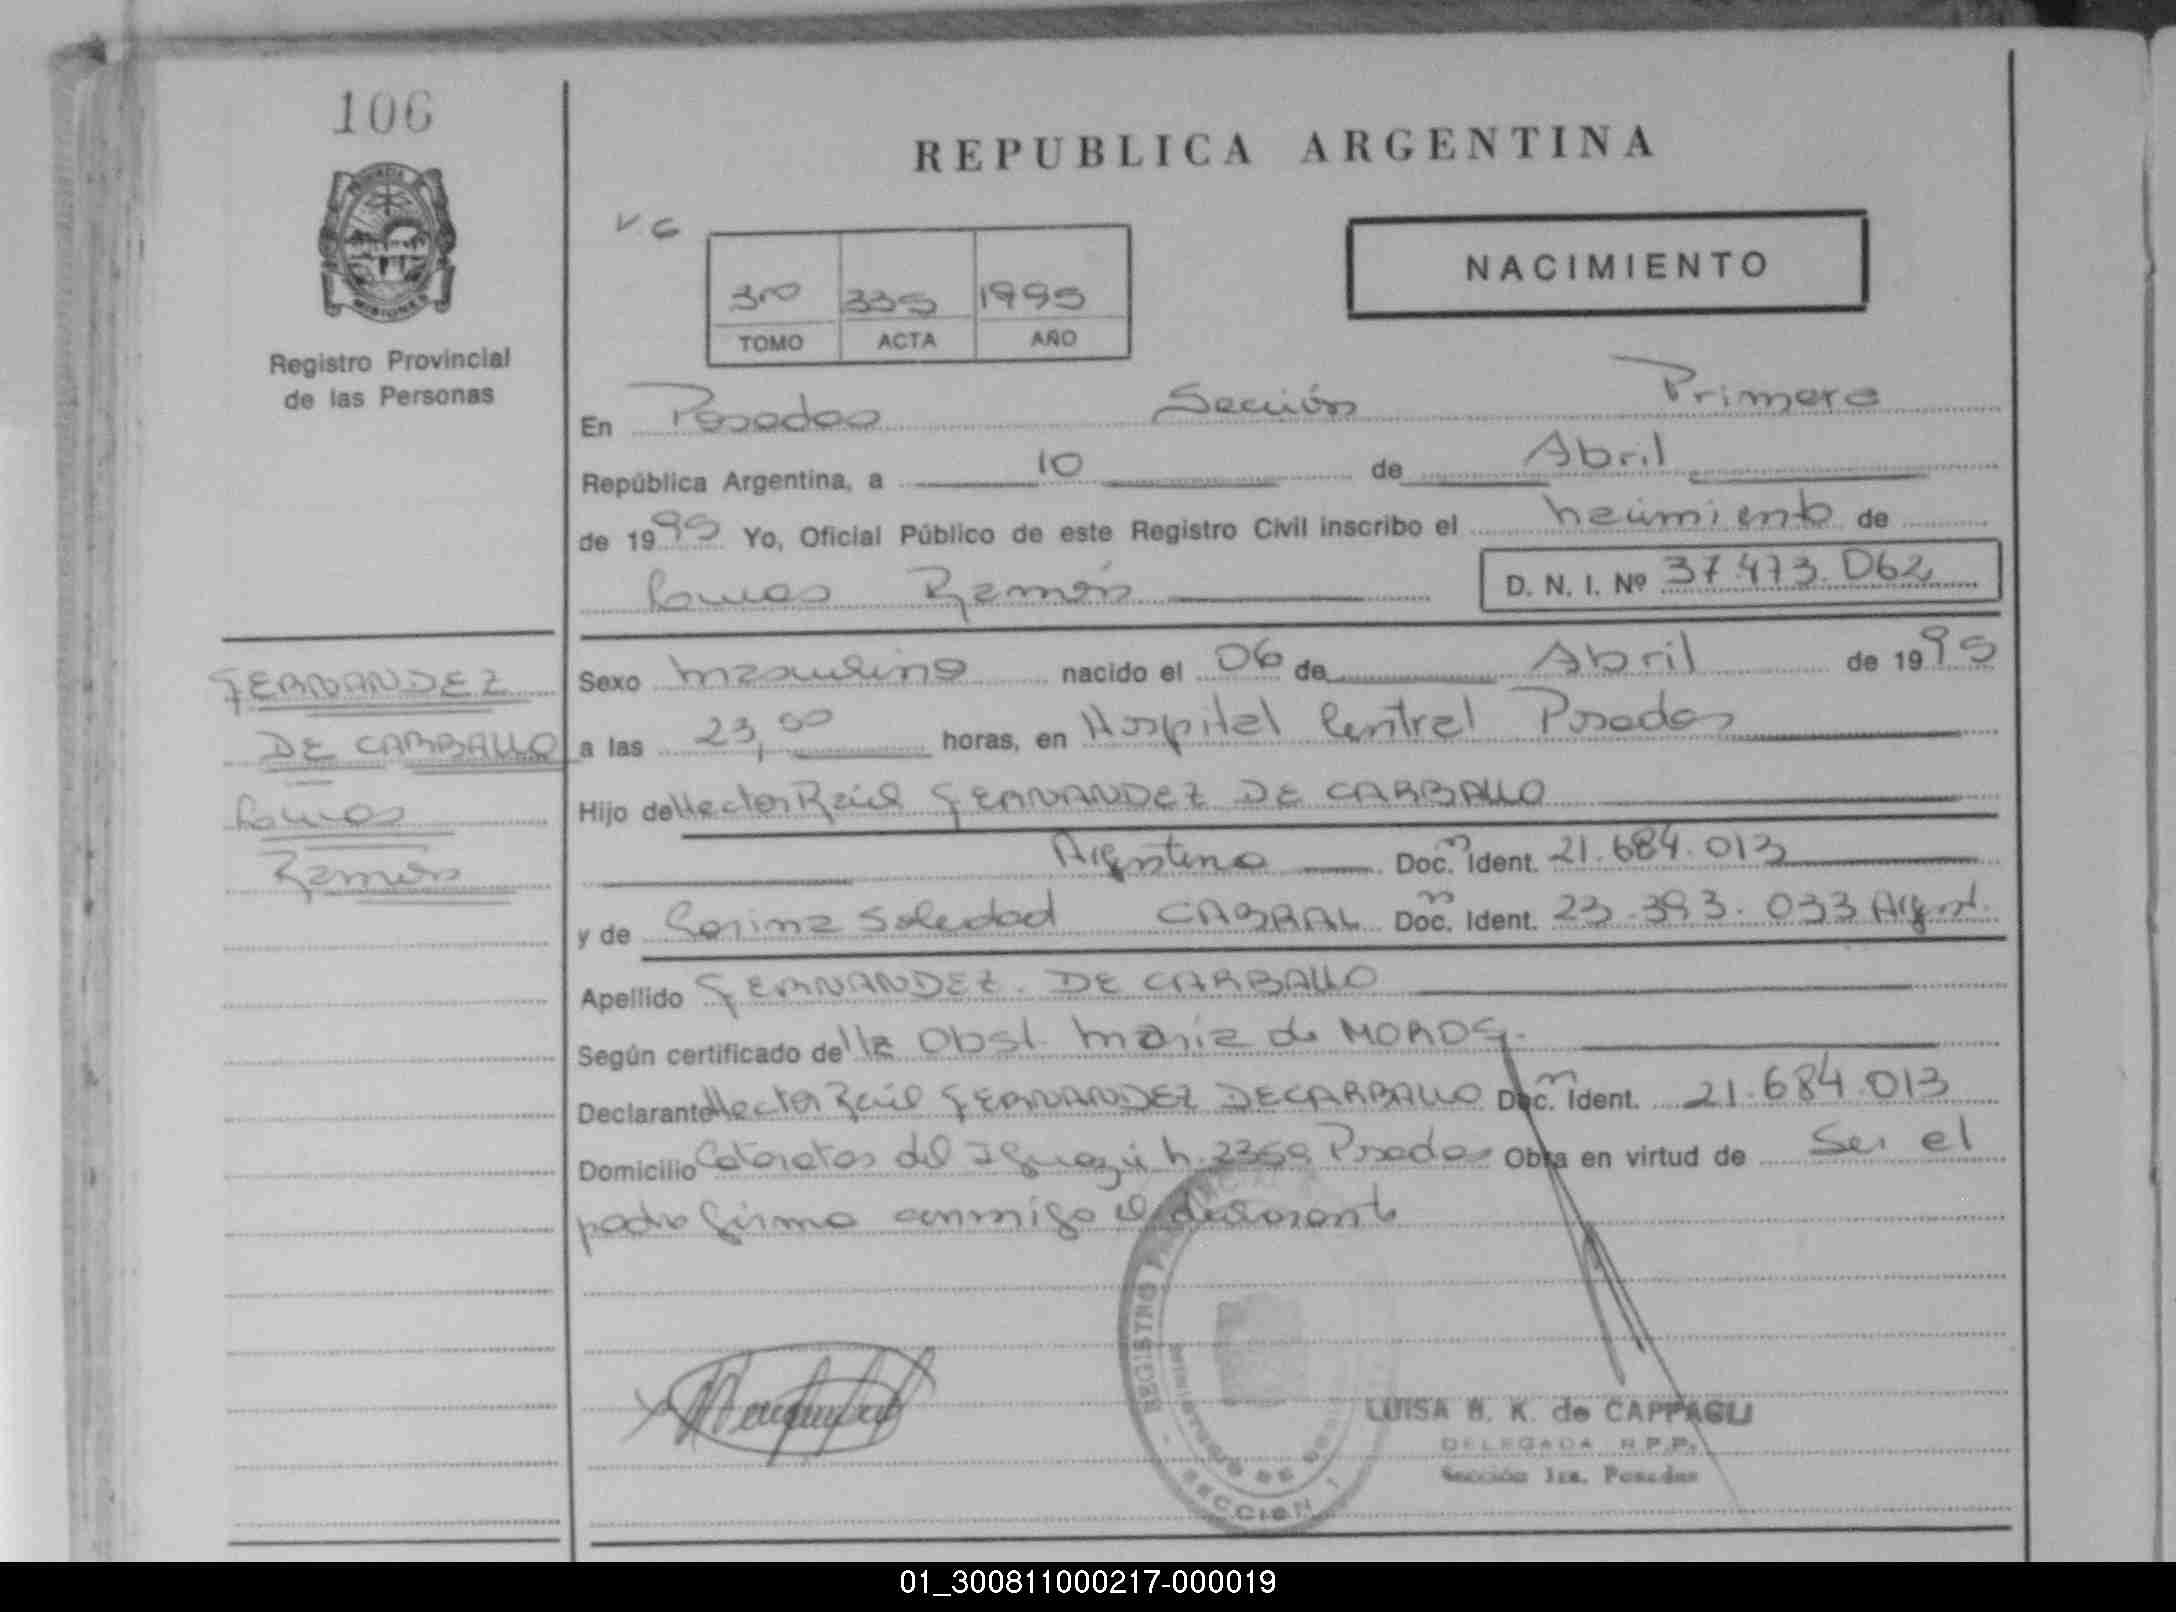 106
REPUBLICA ARGENTINA
PROVINCIA
MISIONES
Registro Provincial
de las Personas
V G
3ro 335 1995
TOMO ACTA AÑO
NACIMIENTO
En Posadas Sección Primera
República Argentina, a 10 de Abril
de 1995 Yo, Oficial Público de este Registro Civil inscribo el nacimiento de
Lucas Ramón D. N. I. Nº 37.473.062
FERNANDEZ
DE CARBALLO
Lucas
Ramón
Sexo masculino nacido el 06 de Abril de 1995
a las 23,00 horas, en Hospital Central Posadas
Hijo de Hector Raúl FERNANDEZ DE CARBALLO
Argentino Doc. Ident. 21.684.013
y de Corina Soledad CABRAL Doc. Ident. 23.393.033 Argent.
Apellido FERNANDEZ DE CARBALLO
Según certificado de la Obst. María de
Declarante Hector Raúl FERNANDEZ DE CARBALLO Doc. Ident. 21.684.013
Domicilio Cataratas del Iguazú n. Posadas Obra en virtud de Ser el
padre firma conmigo el declarante
REGISTRO
SECCION 1
LUISA K. de CAPPAGLI
DELEGADA R.P.P.
Sección 1ra. Posadas
01_300811000217-000019